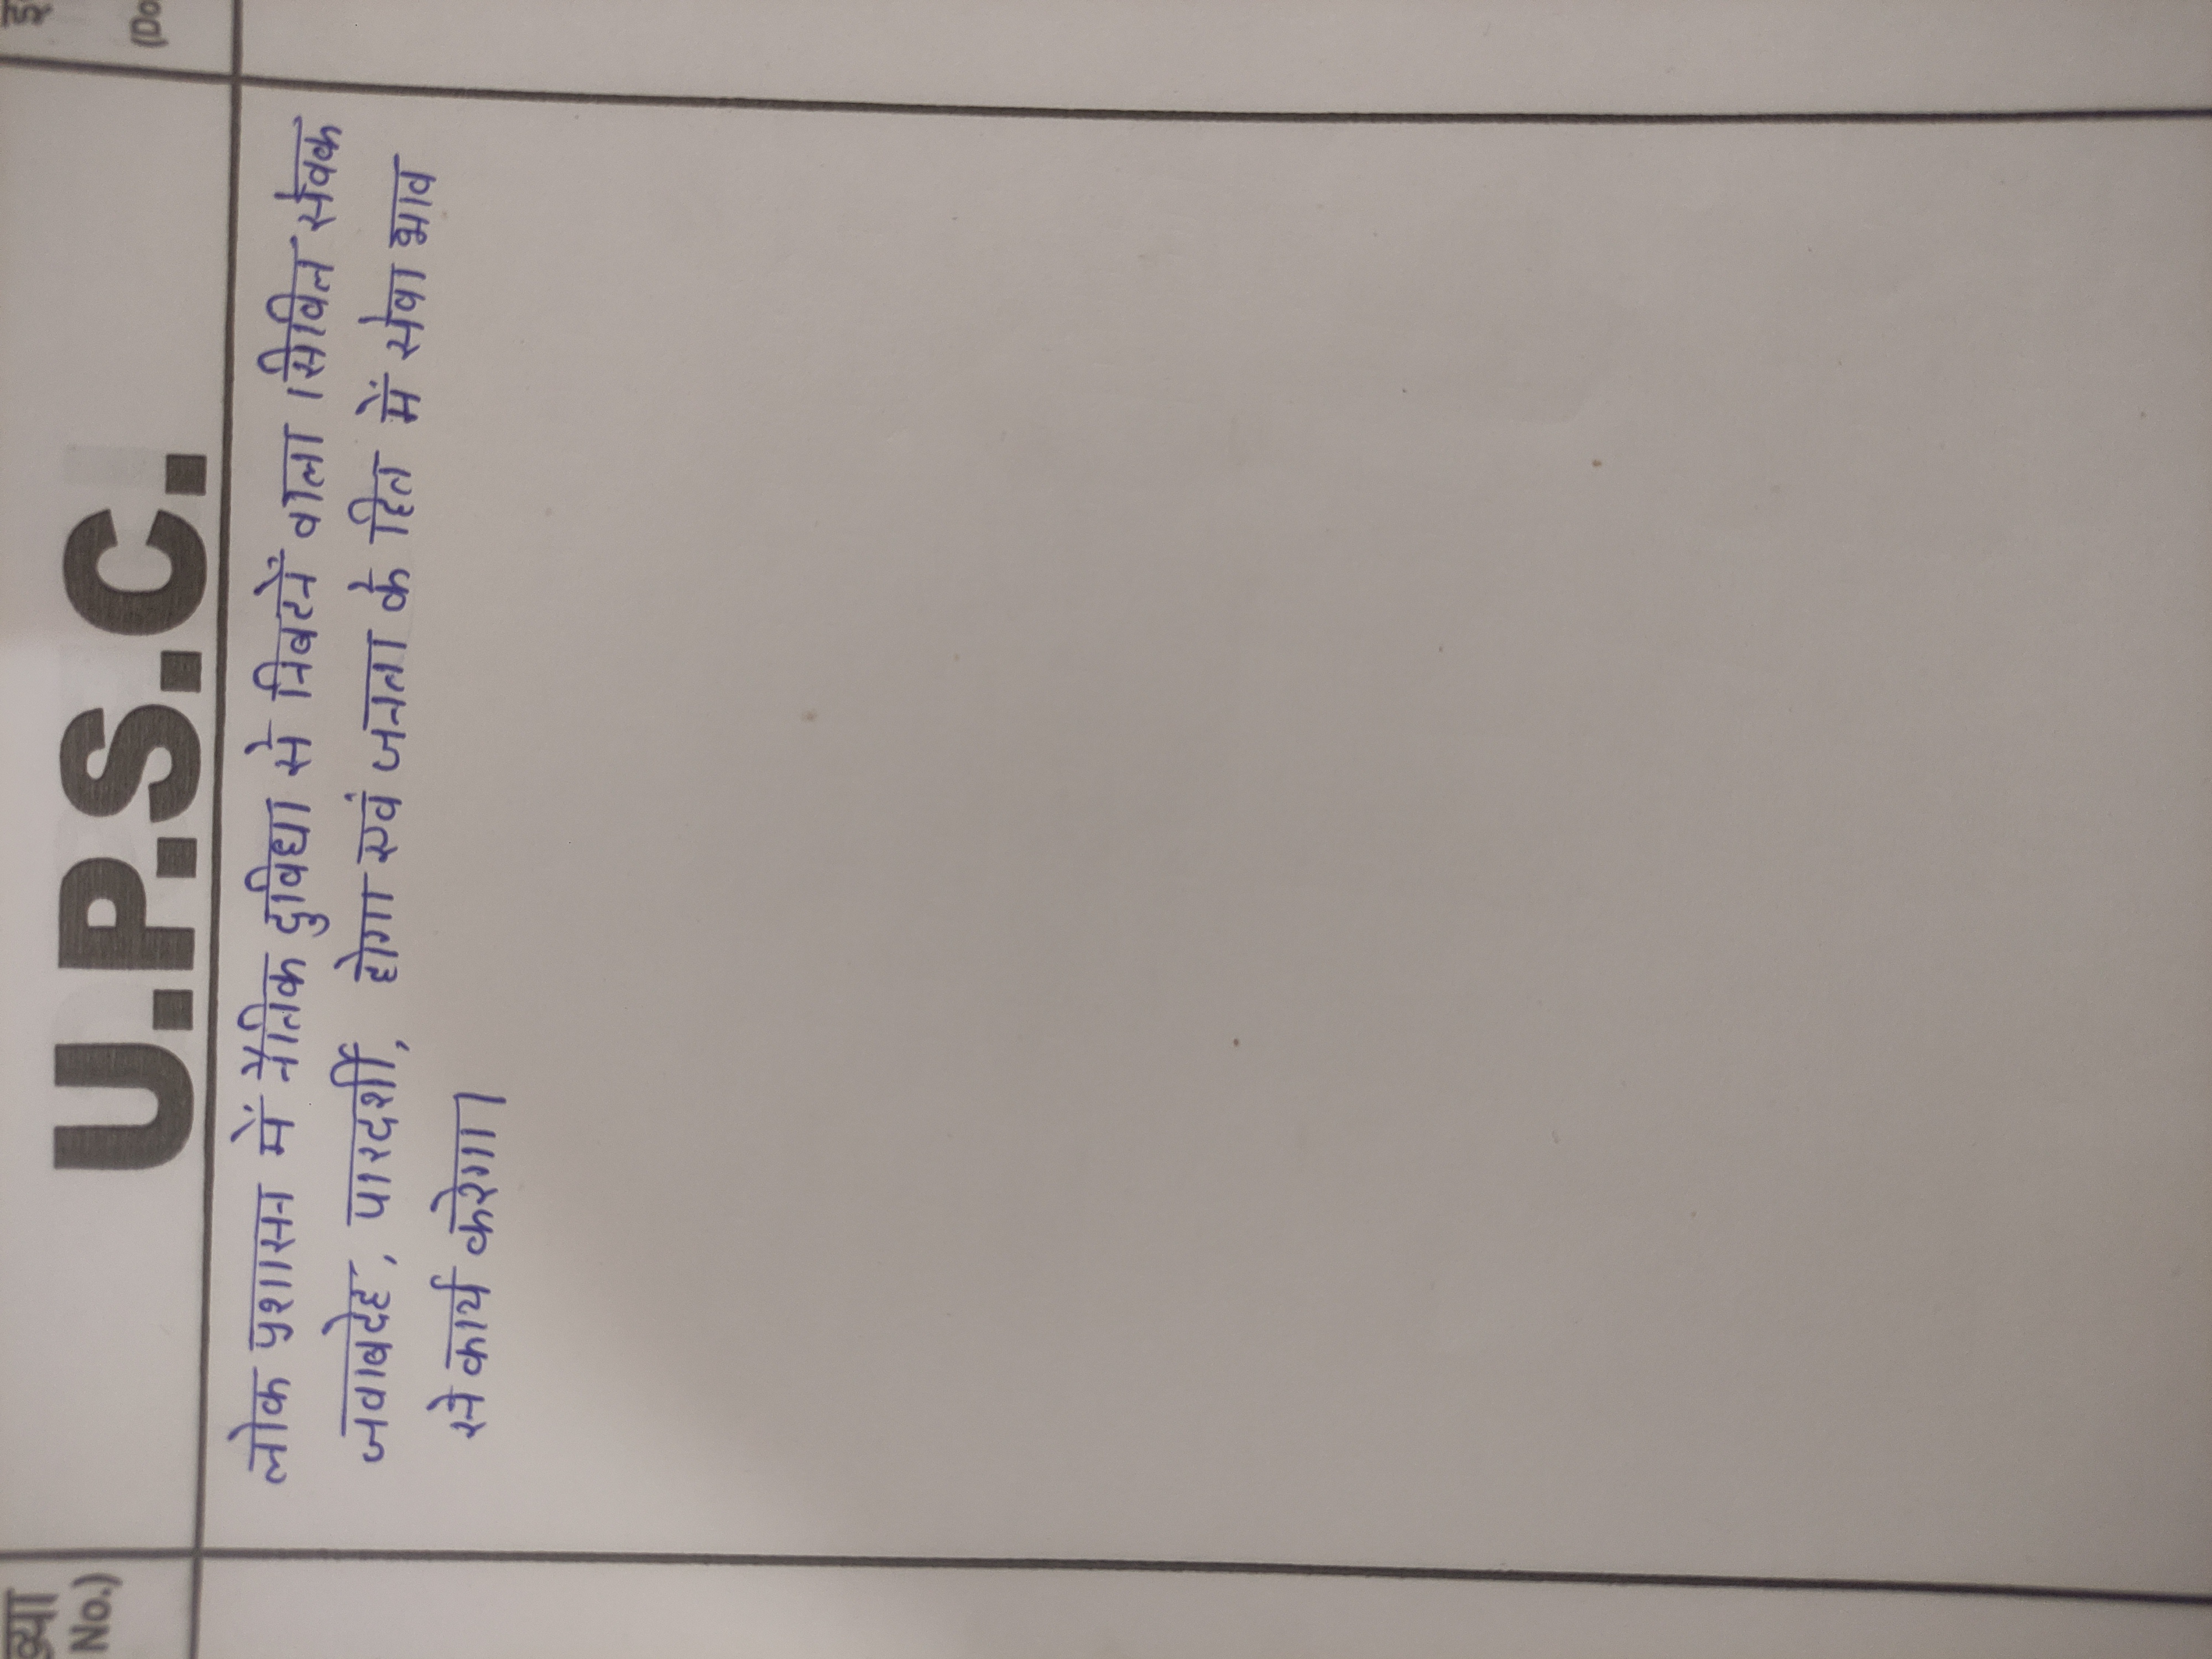 ख्या
No.)
U.P.S.C.
(Do
लोक प्रशासन में नैतिक दुविधा से निबटनें वाला सिविल सेवक
जवाबदेह, पारदर्शी, होगा एवं जनता के हित में सेवा भाव
से कार्य करेगा।